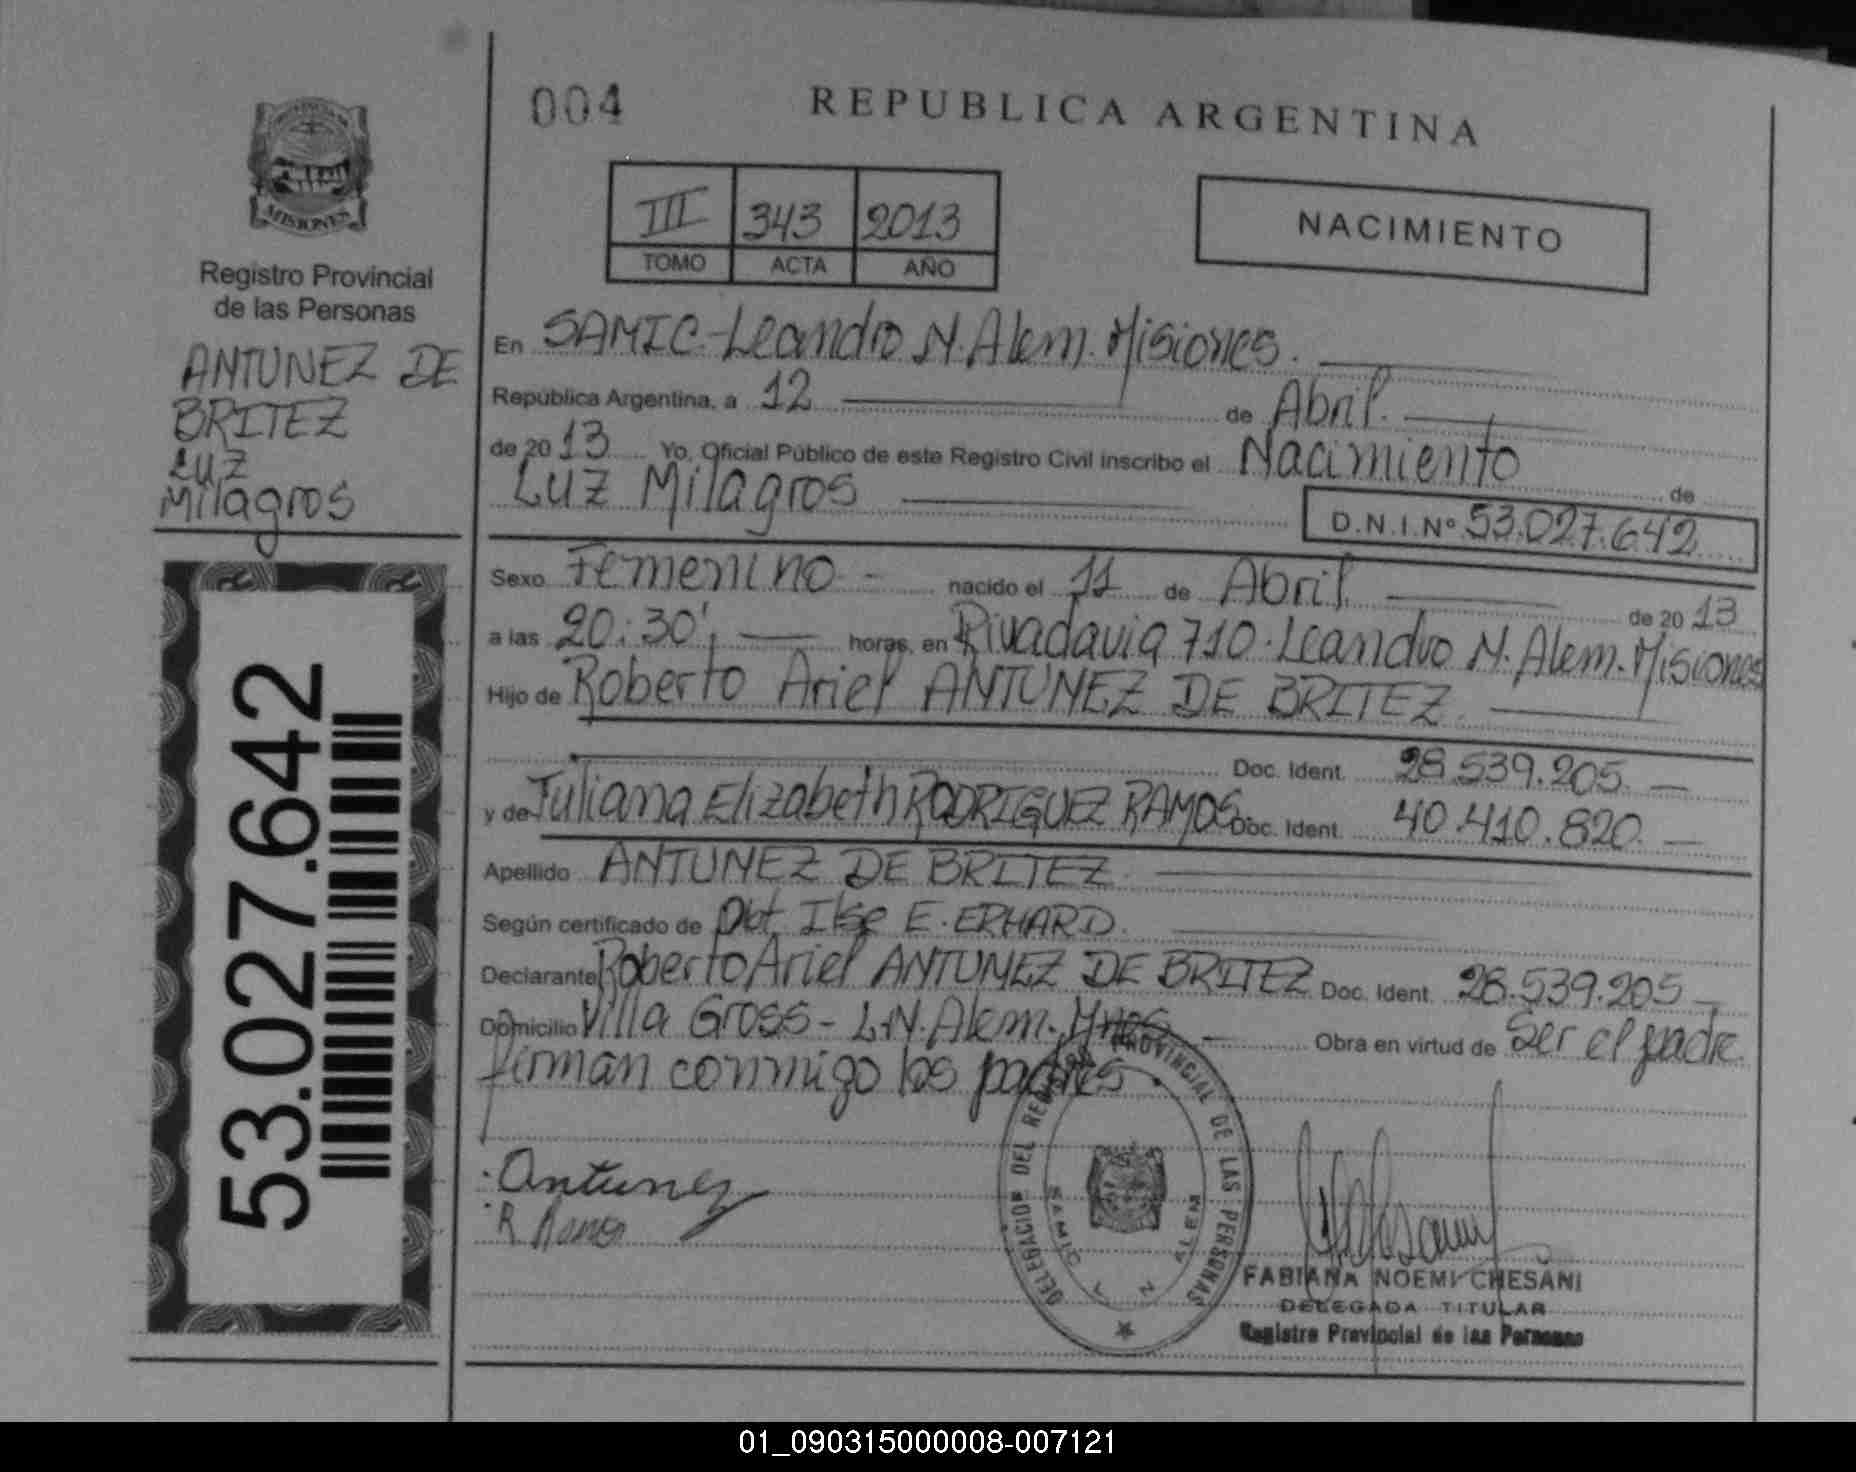 004
REPUBLICA ARGENTINA
MISIONES
Registro Provincial
de las Personas
ANTUNEZ DE
BRITEZ
LUZ
Milagros
53.027.642
III 343 2013
TOMO ACTA AÑO
NACIMIENTO
En SAMIC-Leandro N. Alem. Misiones.
República Argentina, a 12 de Abril.
de 2013 Yo, Oficial Público de este Registro Civil inscribo el Nacimiento de
Luz Milagros
D.N.I.Nº 53.027.642
Sexo Femenino.- nacido el 11 de Abril de 2013
a las 20:30', horas, en Rivadavia 710. Leandro N. Alem. Misiones
Hijo de Roberto Ariel ANTUNEZ DE BRITEZ.
Doc. Ident. 28.539.205.
y de Juliana Elizabeth RODRIGUEZ RAMOS. Doc. Ident. 40.410.820.
Apellido ANTUNEZ DE BRITEZ.
Según certificado de Obt. Ilse E. ERHARD.
Declarante Roberto Ariel ANTUNEZ DE BRITEZ Doc. Ident. 28.539.205
Domicilio Villa Gross - L.N. Alem. Mnes Obra en virtud de Ser el padre.
firman conmigo los padres.
Antunez
DELEGACION DEL REGISTRO PROVINCIAL DE LAS PERSONAS
SAMIC L N ALEM
FABIANA NOEMI CHESANI
DELEGADA TITULAR
Registro Provincial de las Personas
01_090315000008-007121